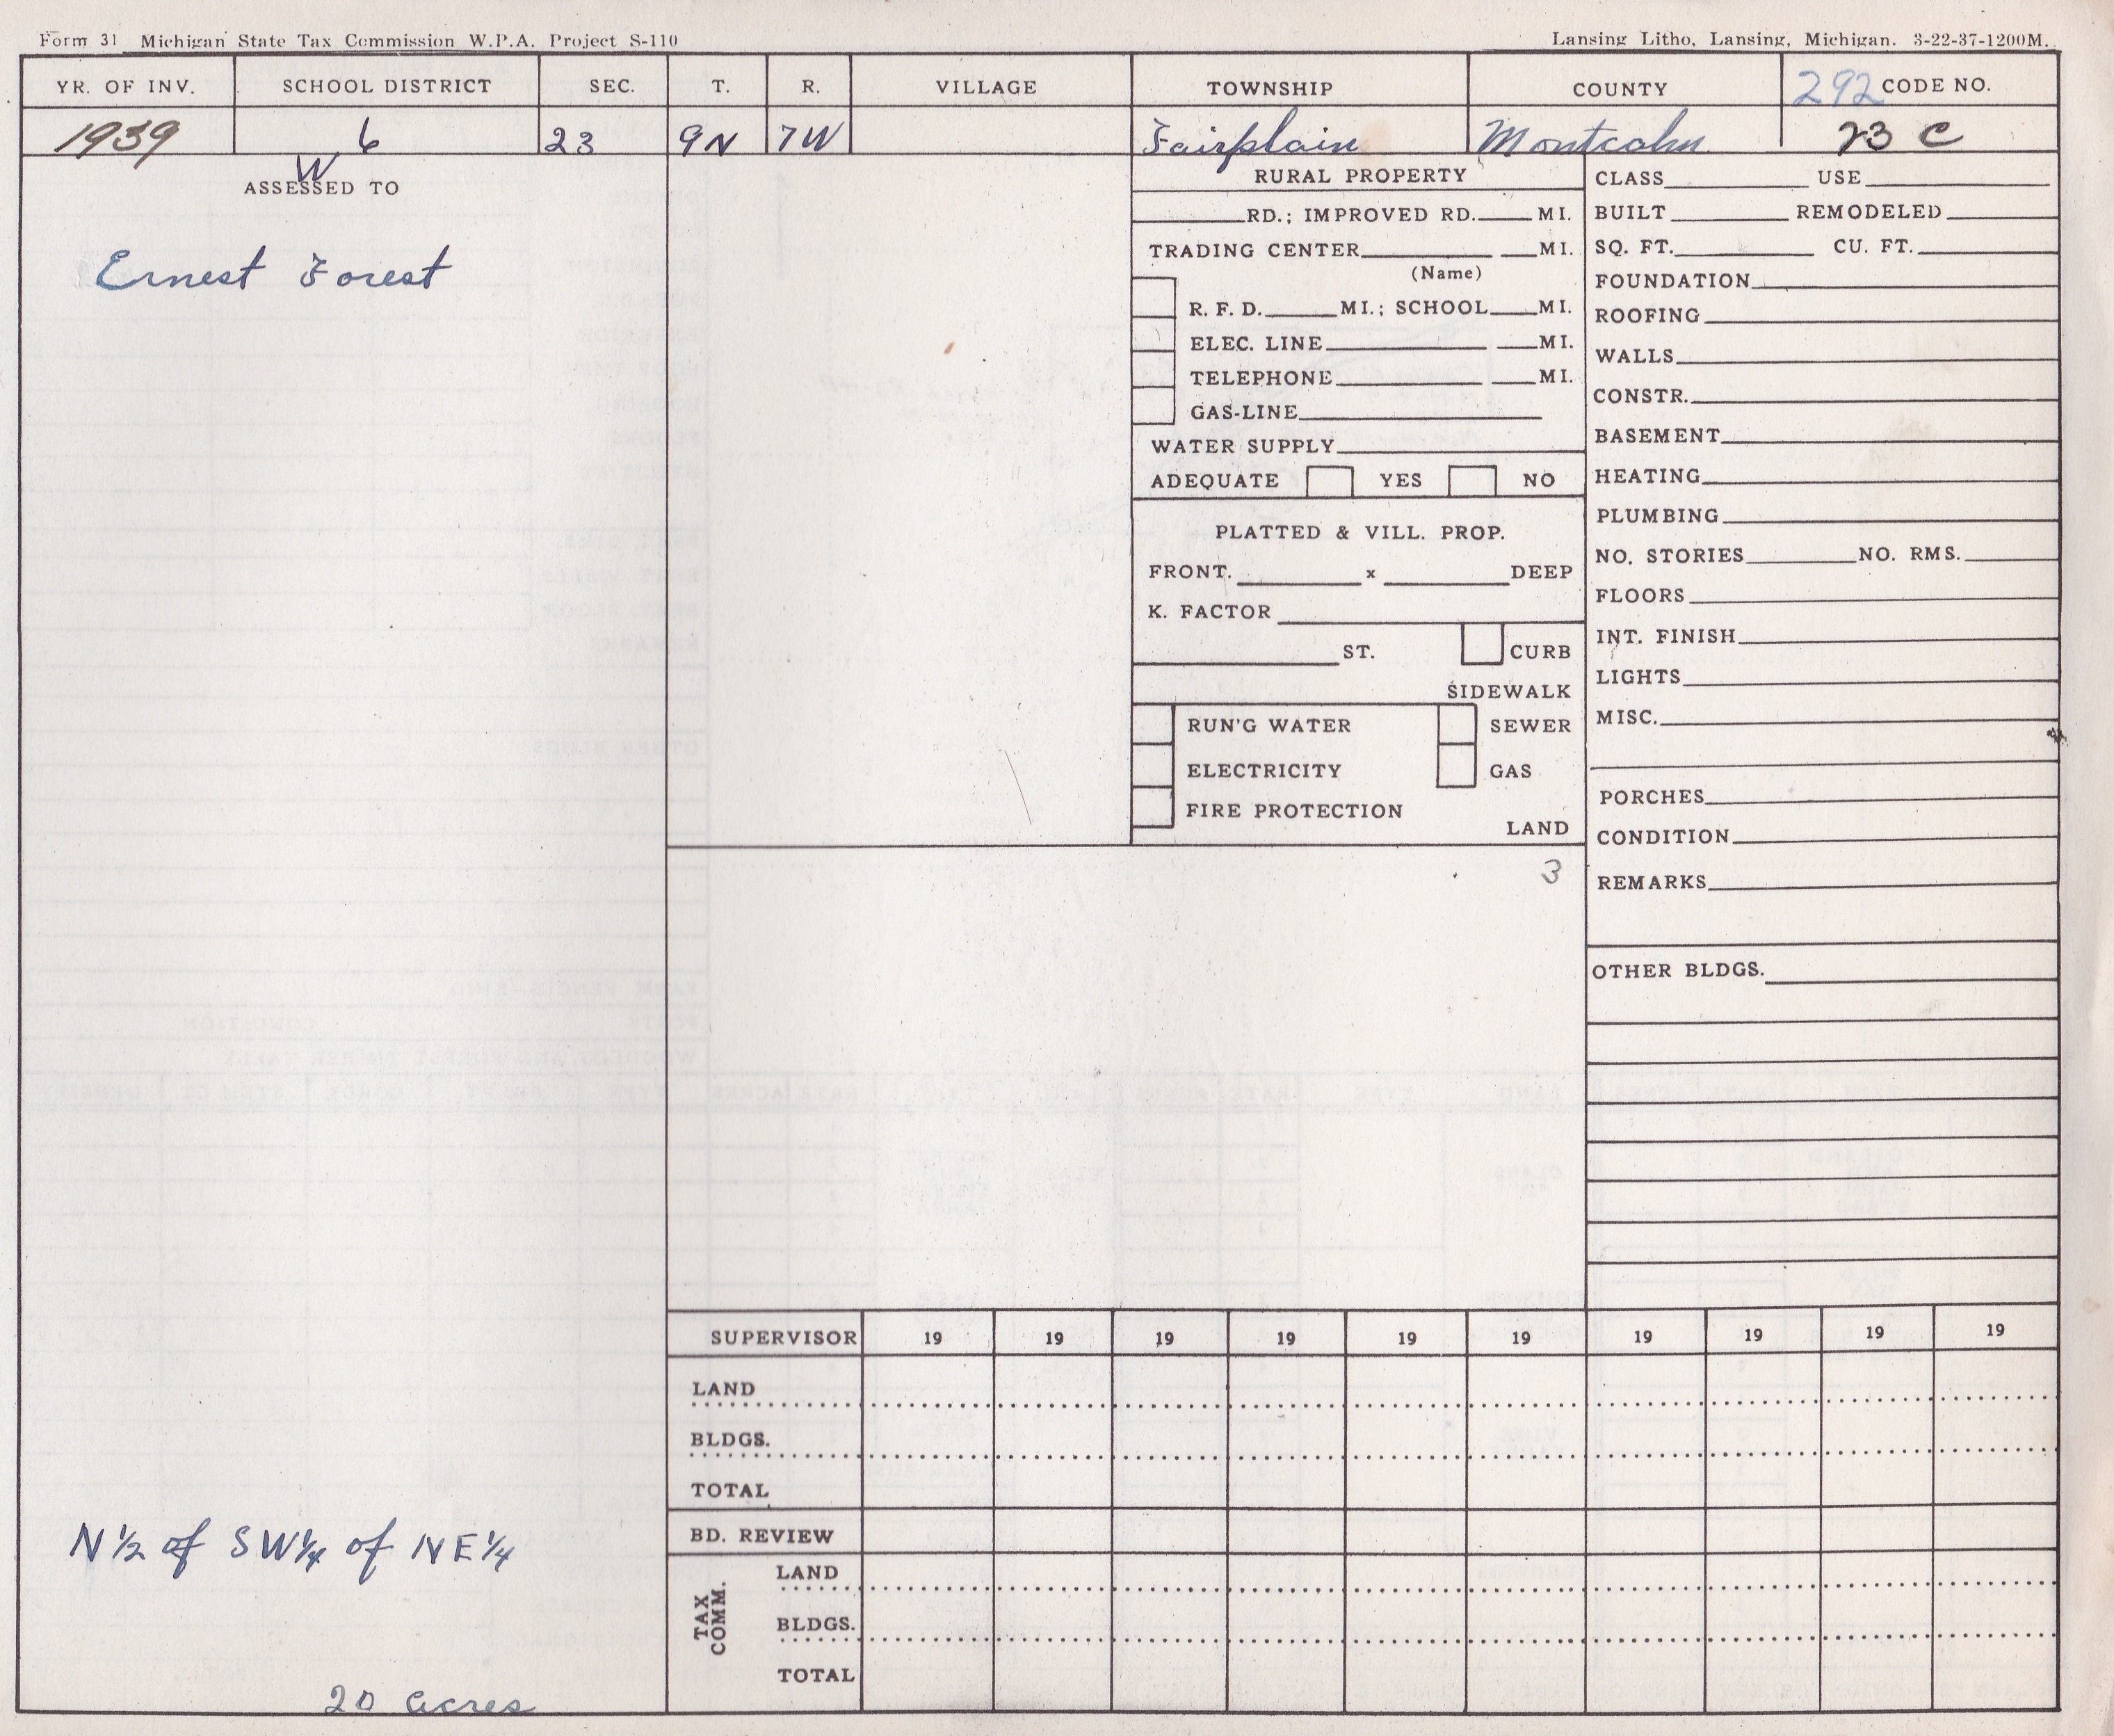 Form 31 Michigan State Tax Commission W.P.A. Project S-110
Lansing Litho, Lansing, Michigan. 3-22-37-1200M.
YR. OF INV. SCHOOL DISTRICT SEC. T. R. VILLAGE TOWNSHIP COUNTY 292 CODE NO.
1939 6 23 9N 7W Fairplain Montcalm 23 C
W
ASSESSED TO
Ernest Forest
N½ of SW¼ of NE¼
20 acres
RURAL PROPERTY
RD.; IMPROVED RD. MI.
TRADING CENTER MI.
(Name)
R. F. D. MI.; SCHOOL MI.
ELEC. LINE MI.
TELEPHONE MI.
GAS-LINE
WATER SUPPLY
ADEQUATE YES NO
PLATTED & VILL. PROP.
FRONT. x DEEP
K. FACTOR
ST. CURB
SIDEWALK
RUN'G WATER SEWER
ELECTRICITY GAS
FIRE PROTECTION
LAND
3
CLASS USE
BUILT REMODELED
SQ. FT. CU. FT.
FOUNDATION
ROOFING
WALLS
CONSTR.
BASEMENT
HEATING
PLUMBING
NO. STORIES NO. RMS.
FLOORS
INT. FINISH
LIGHTS
MISC.
PORCHES
CONDITION
REMARKS
OTHER BLDGS.
SUPERVISOR 19 19 19 19 19 19 19 19 19 19
LAND
BLDGS.
TOTAL
BD. REVIEW
TAX COMM.
LAND
BLDGS.
TOTAL